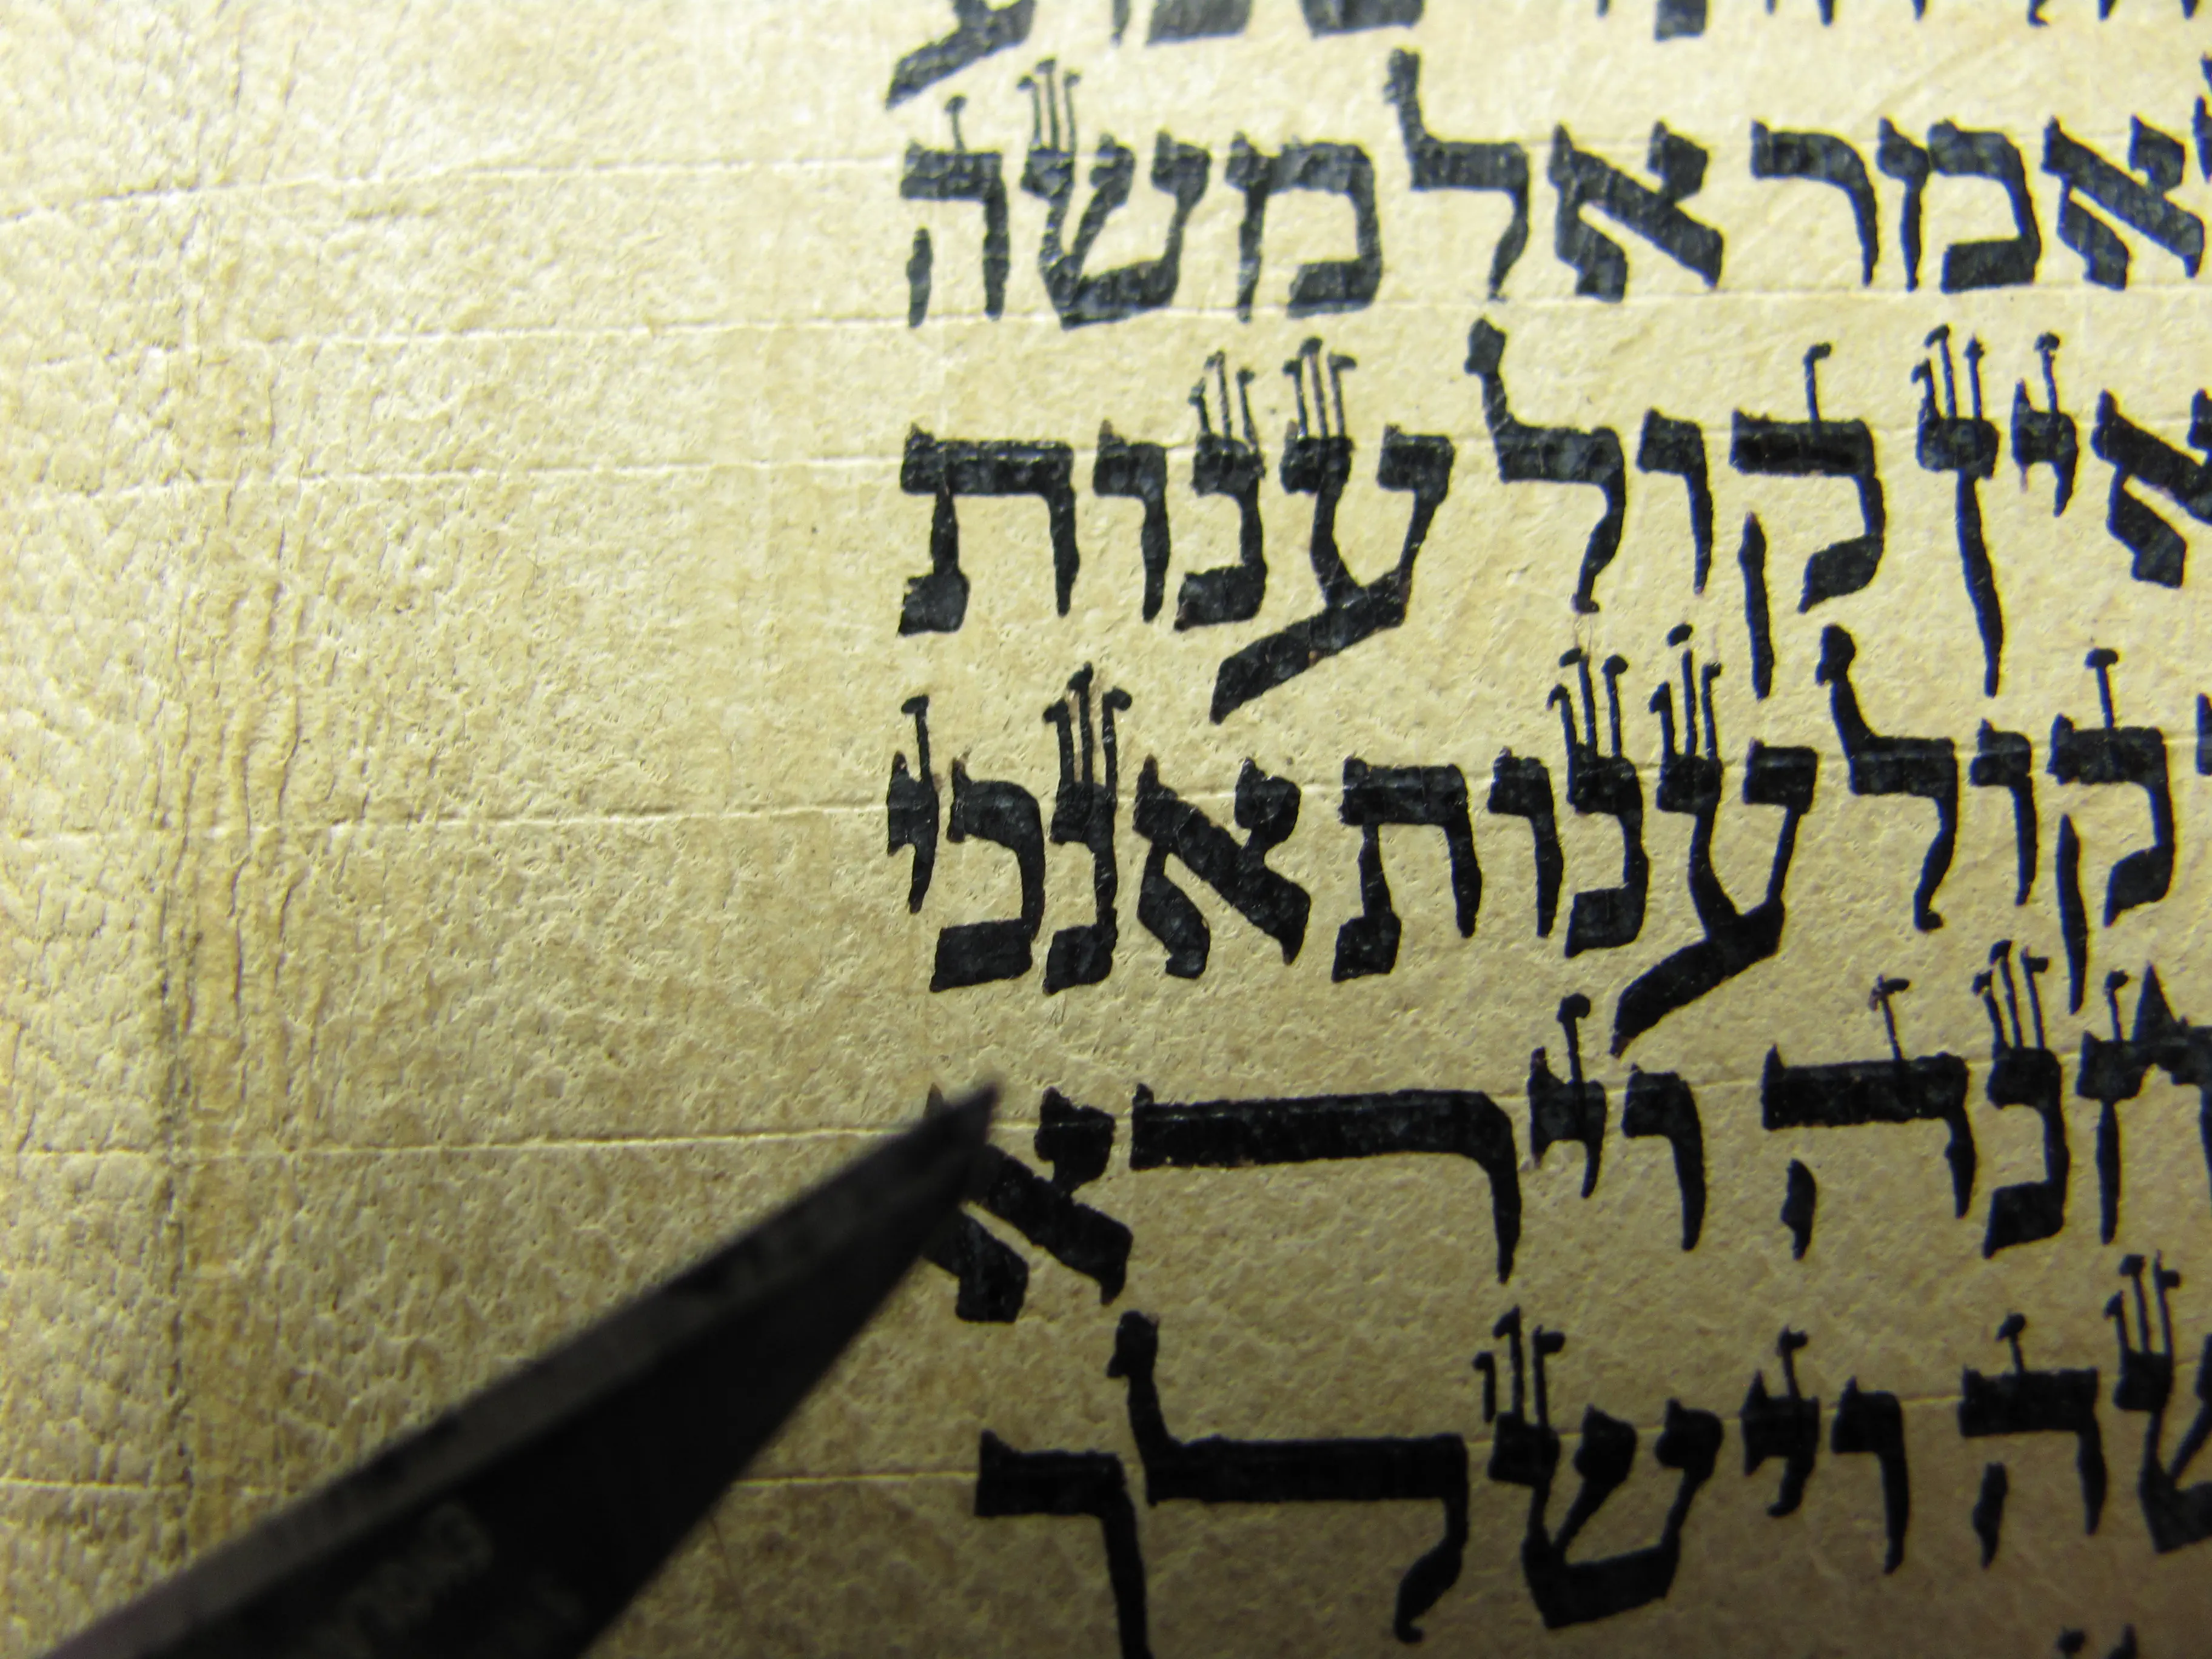 אמר אל משה
אין קול ענות
קול ענות אנכי
חנה וירא
שה וישלך